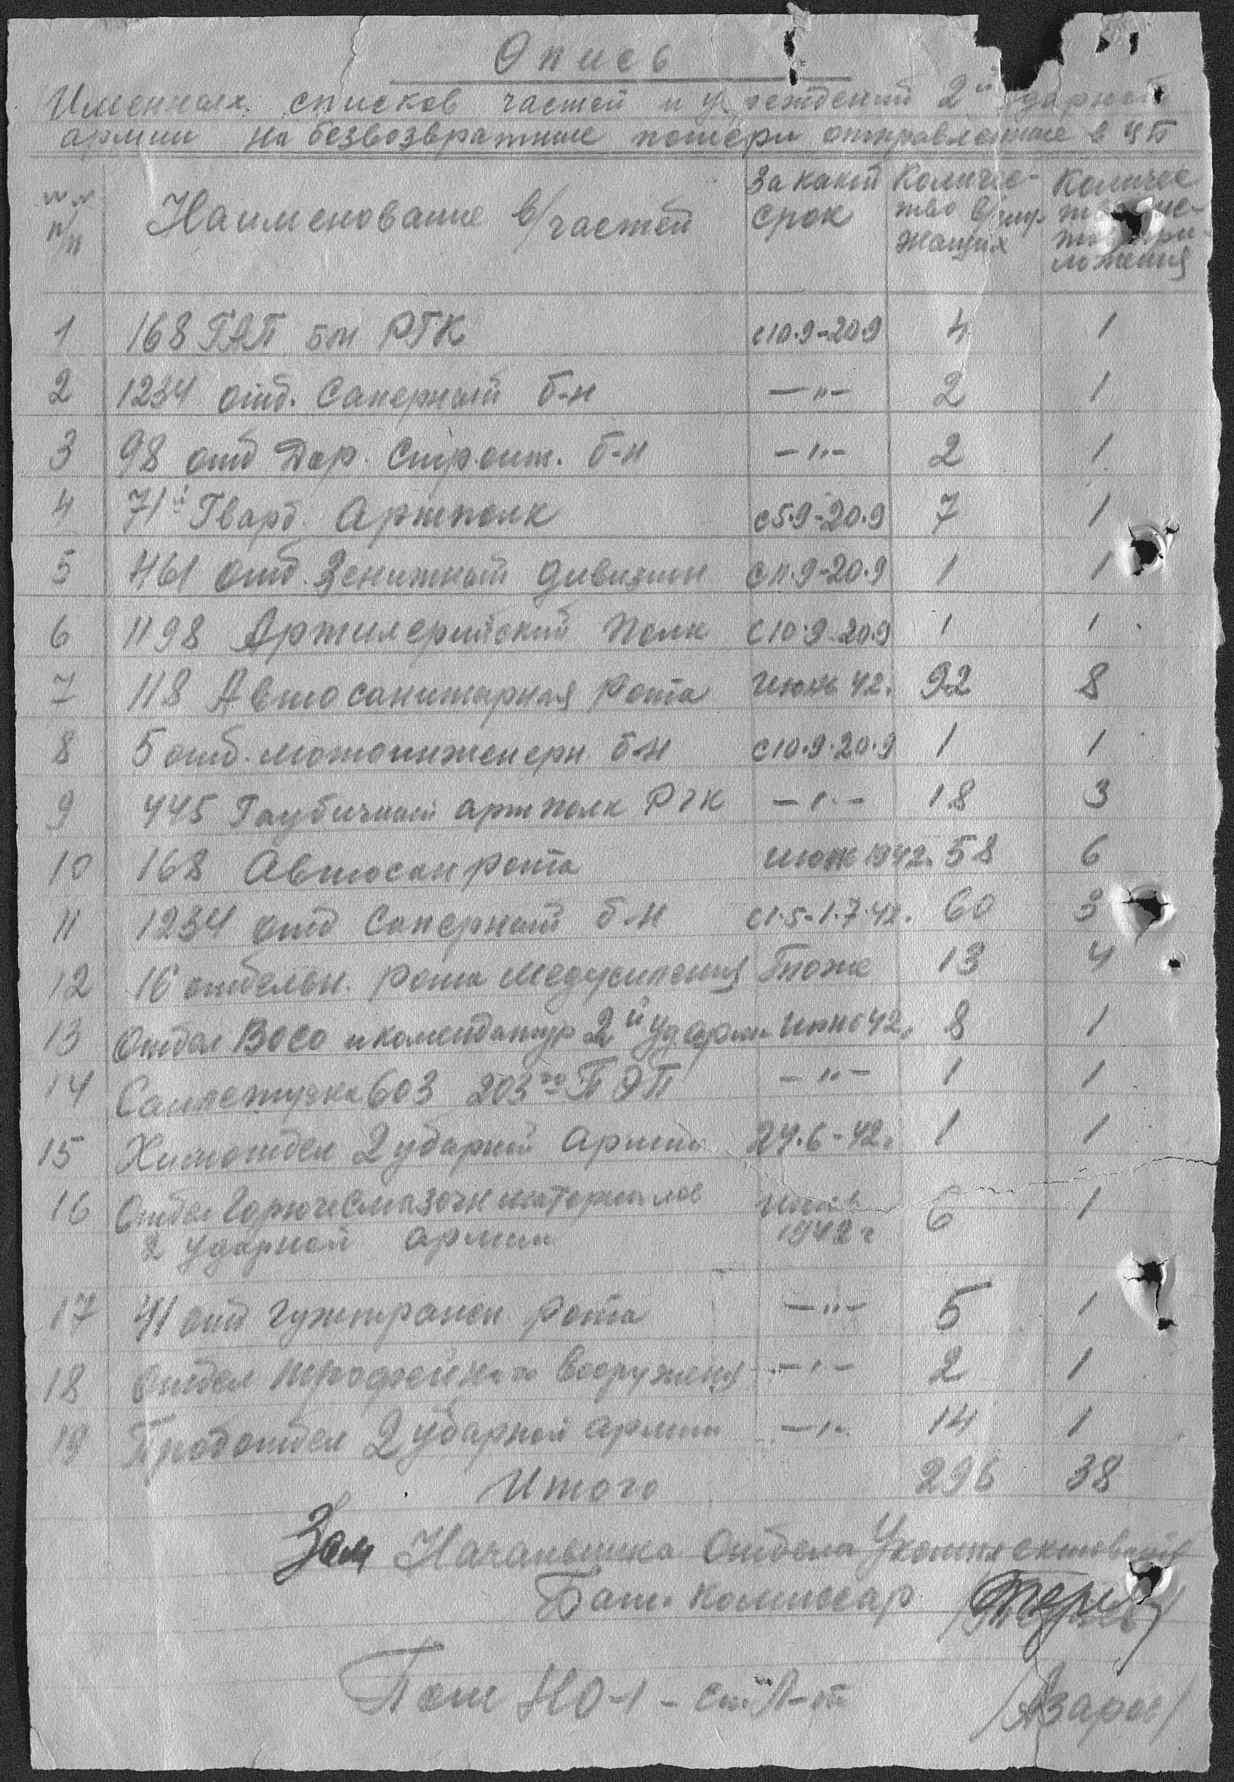 Опись
Именных списков частей и учреждений 2й ударной
армии на безвозвратные потери отправленные в ЦБ
№№ п/п
Наименование в/частей
За какой срок
Количество в/служащих
Количес листов приложения
1 168 ГАП бм РГК с10.9-20.9 4 1
2 1234 отд. Саперный б-н —"— 2 1
3 98 отд Дор. Строит. б-н —"— 2 1
4 71й Гвард. Артполк с5.9-20.9 7 1
5 461 отд. Зенитный дивизион с11.9-20.9 1 1
6 1198 Артилерийский Полк с10.9-20.9 1 1
7 118 Автосанитарная Рота Июнь 42. 92 8
8 5 отд. мотоинженерн б-н с10.9-20.9 1 1
9 445 Гаубичный артполк РГК —"— 18 3
10 168 Автосанрота июнь 1942. 58 6
11 1234 отд Саперный б-н с1.5-1.7.42. 60 3
12 16 отдельн. рота медусиления Тоже 13 4
13 Отдел ВОСО и комендатур 2й уд арм. Июнь 42. 8 1
14 Санлетучка 603 203го ПЭП —"— 1 1
15 Химотдел 2 ударной армии 24.6-42. 1 1
16 Отдел Горючесмазочн материалов Июнь 6 1
2 ударной армии 1942 г
17 41 отд гужтрансп рота —"— 5 1
18 Отдел трофейного вооружения —"— 2 1
19 Продотдел 2 ударной армии —"— 14 1
Итого 296 38
Зам Начальника Отдела Укомплектования
Бат. комиссар
Пом НО-1 - ст. Л-нт /Азаров/